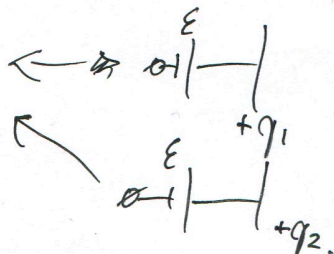 ε
+q₁
ε
+q₂.